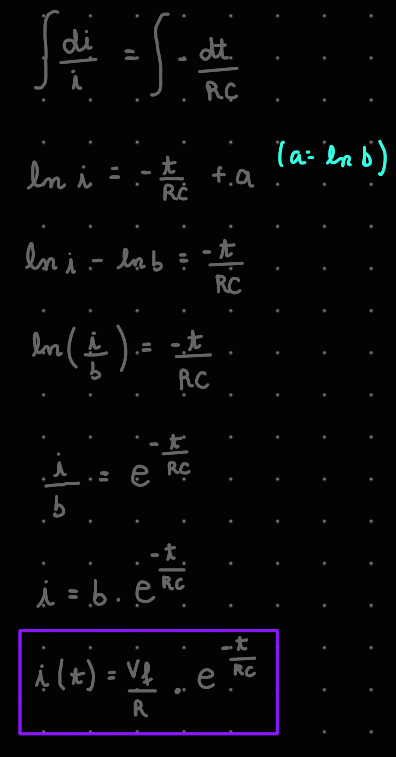 ∫ di/i = ∫ - dt/RC
ln i = - t/RC + a (a = ln b)
ln i - ln b = -t/RC
ln(i/b) = -t/RC
i/b = e^(-t/RC)
i = b . e^(-t/RC)
i(t) = Vf/R . e^(-t/RC)